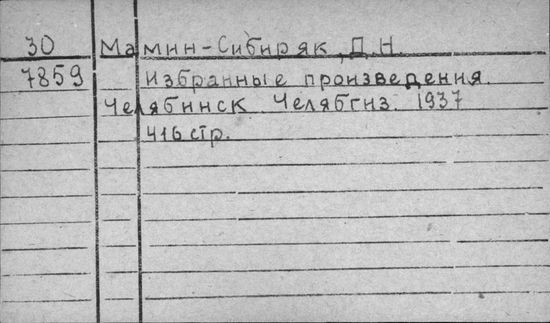 30 Мамин-Сибиряк, Д.Н.
7859 Избранные произведения.
Челябинск. Челябгиз. 1937
416 стр.